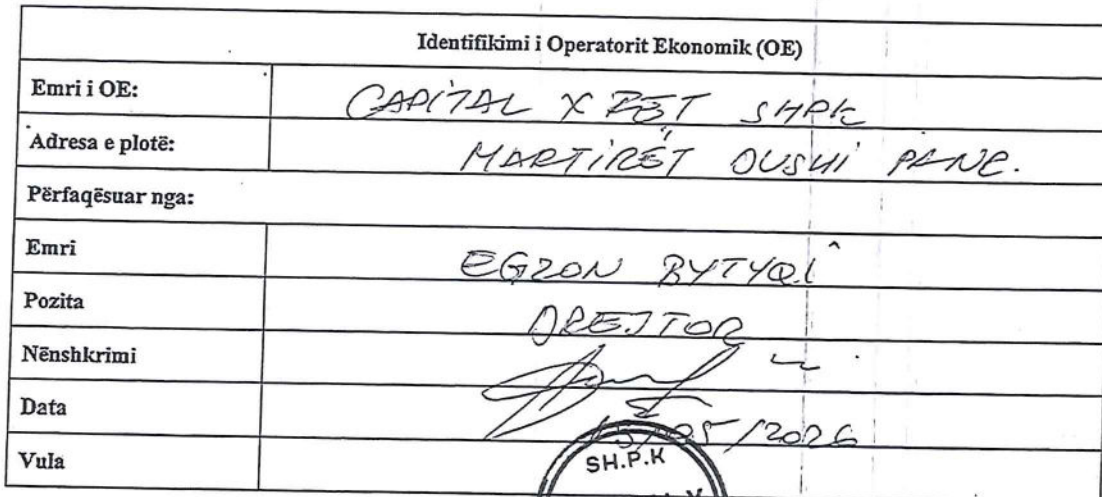 Identifikimi i Operatorit Ekonomik (OE)
Emri i OE: CAPITAL X PET SHPK
Adresa e plotë: MARTIRËT
Përfaqësuar nga:
Emri EGZON BYTYQI
Pozita DREJTOR
Nënshkrimi
Data 15/05/2026
Vula
SH.P.K